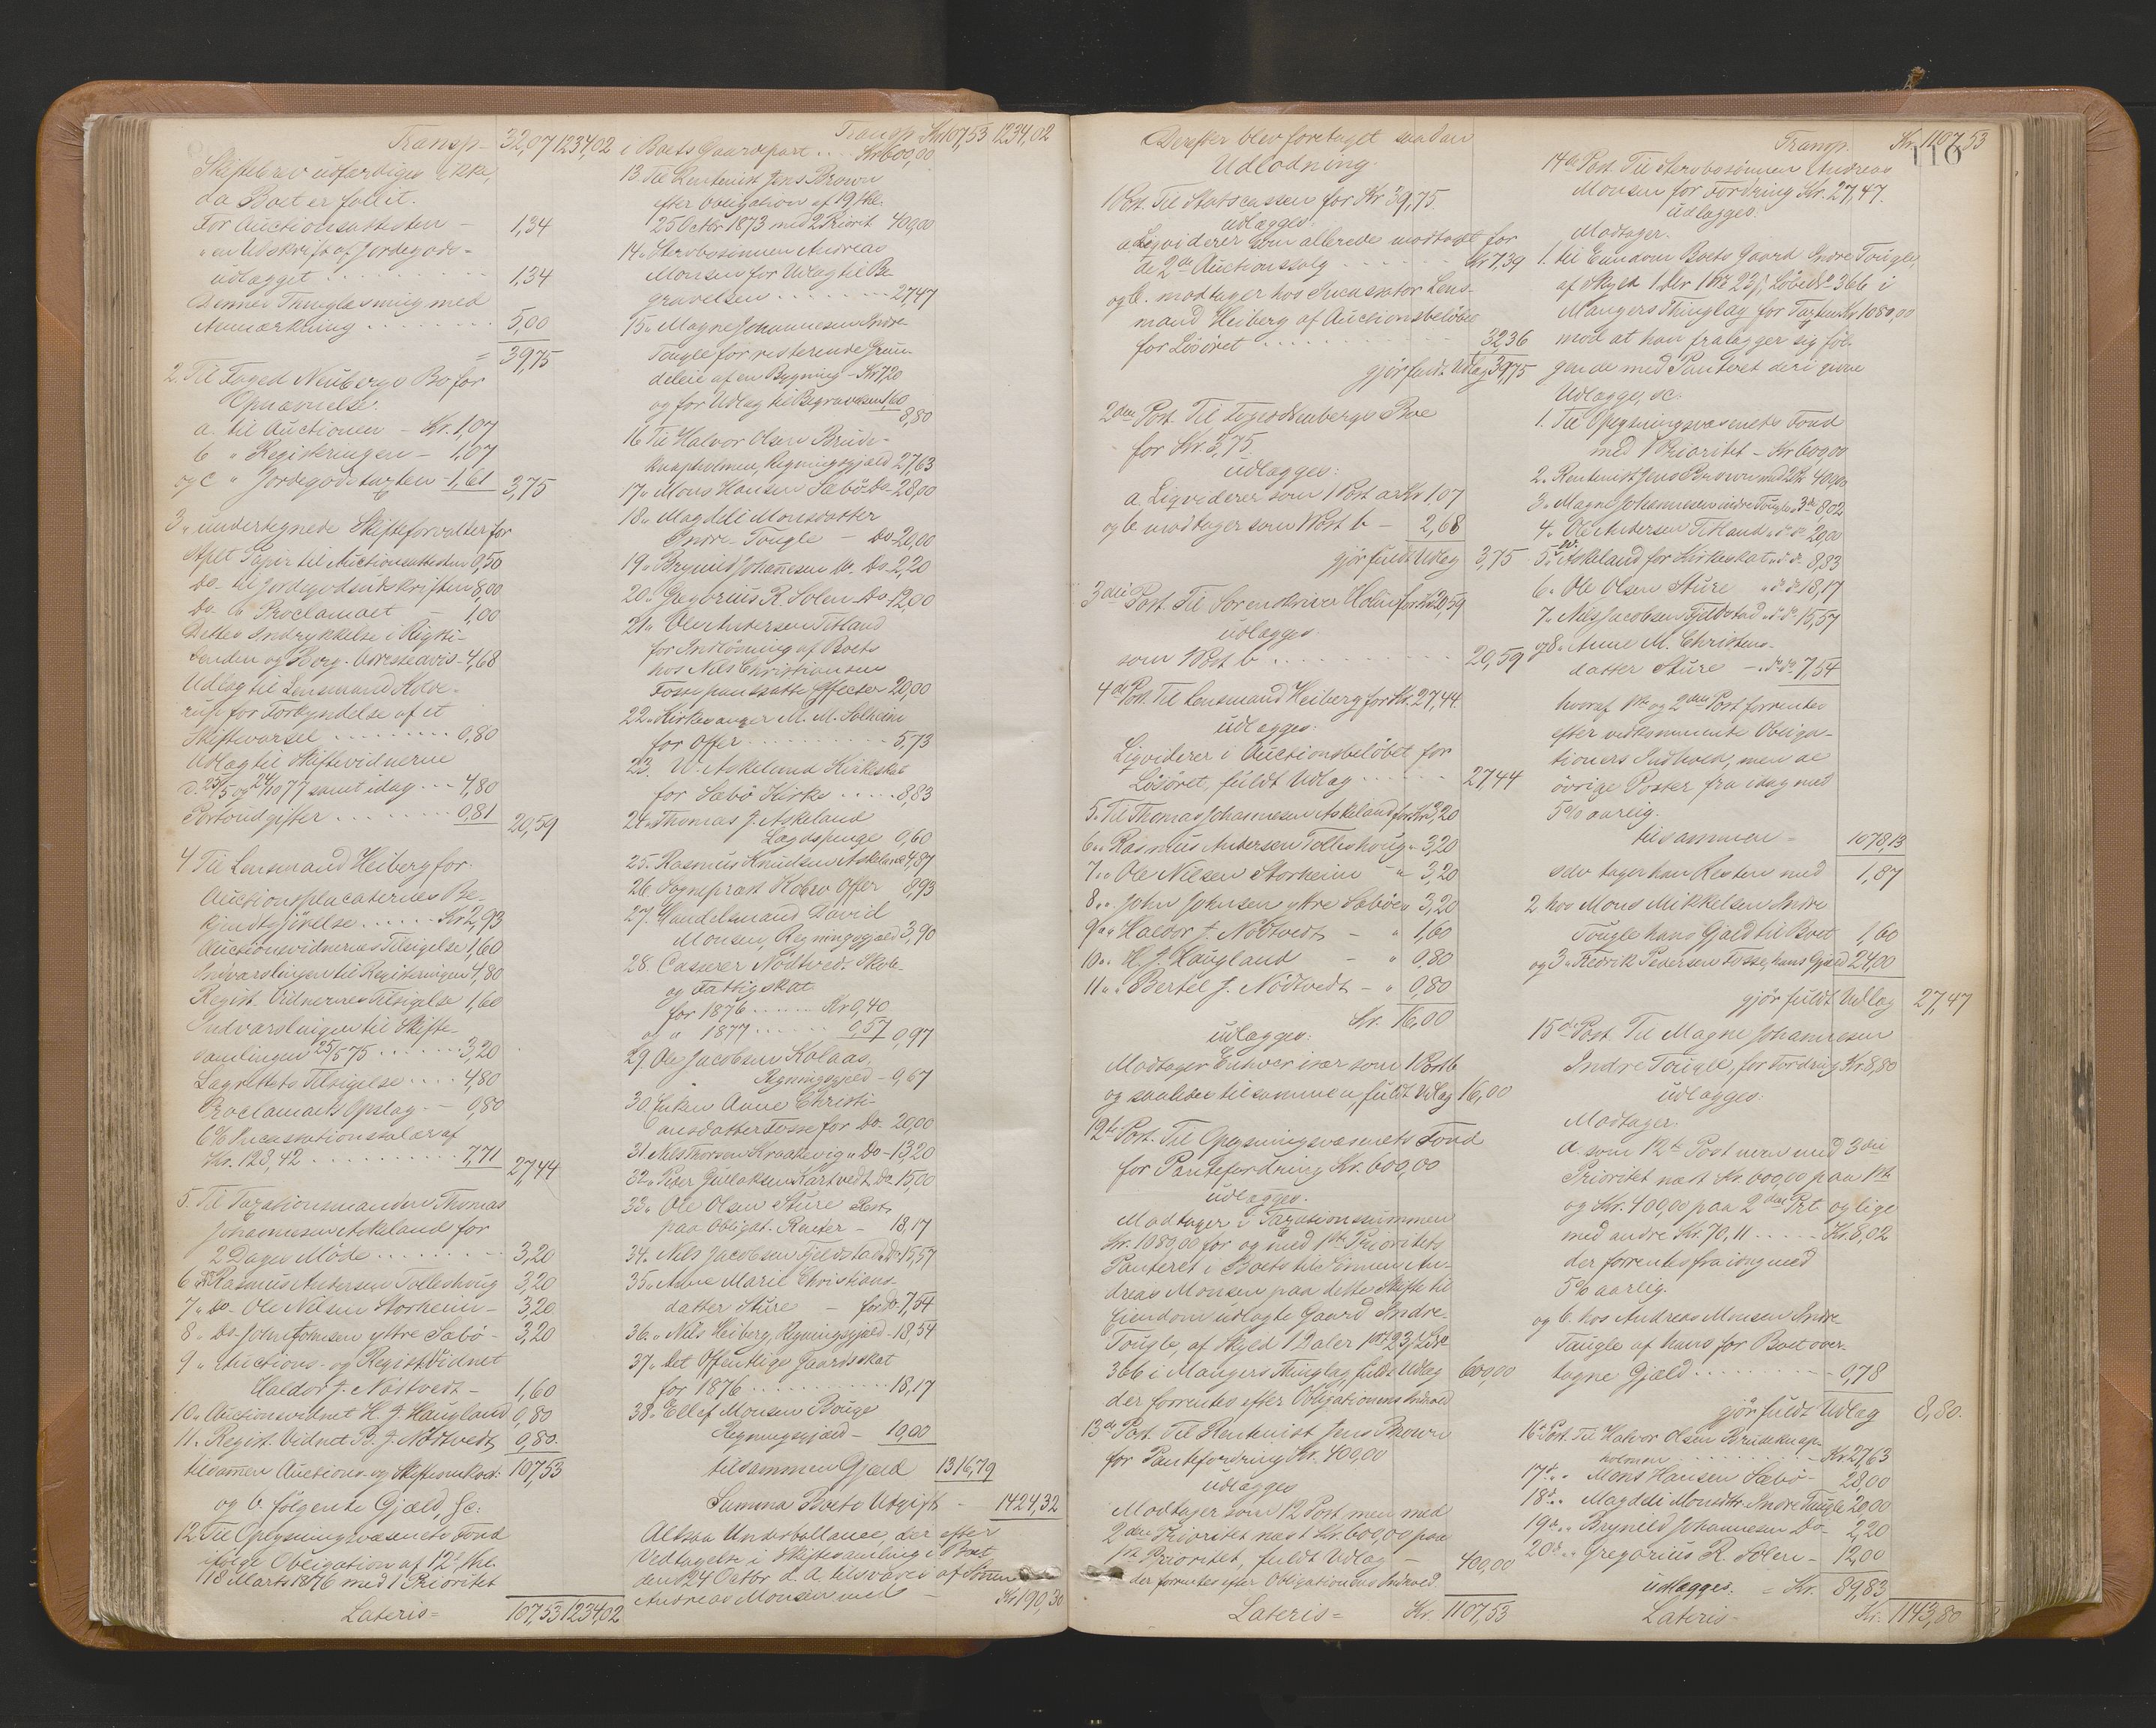 Transp. 32,07 1234,02
Skiftebrev udfærdiges ikke,
da Boet er fallit.
For Auctionsattesten - 1,34
" en Udskrift af Jordegods-
udlægget 1,34
Dennes Thinglæsning med
Anmærkning 5,00
= 39,75
2. Til Foged Neubergs Bo for
Opnævnelse
a. til Auctionen - Kr. 1,07
b " Registreringen - 1,07
og c " Jordegodstaxten - 1,61 3,75
3 " undertegnede Skifteforvalter for
stplt Papir til Auctionsattesten 0,50
Do. til Jordegodsudskriften 8,00
Do. " Proclamaet - 1,00
Dettes Indrykkelse i Rigsti-
denden og Berg. Adresseavis - 4,68
Udlæg til Lensmand
for Forkyndelse af et
Skiftevarsel 0,80
Udlæg til Skiftevidnerne
d. 25/5 og 24/10 77 samt idag 4,80
Portoudgifter 0,81 20,59
4 Til Lensmand Heiberg for
Auctionsplacaternes Be-
kjendtgjörelse Kr 2,93
Auctionsvidnernes Tilsigelse 1,60
Indvarslingen til Registreringen 4,80
Regist. Vidnernes Tilsigelse 1,60
Indvarslingen til Skifte-
samlingen 25/5 75 3,20
Lagrettets Tilsigelse 4,80
Proclamaets Opslag - 0,80
6% Incassationssalær af
Kr. 128,42 7,71 27,44
5. Til Taxationsmanden Thomas
Johannesen Askeland for
2 Dages Möde 3,20
6 " Rasmus Andersen Tolleshoug 3,20
7 " Do Ole Nilsen Storheim - 3,20
8 " Do John Johnsen ytre Sæbö - 3,20
9 " Auctions- og Regist. Vidnet
Haldor J. Nödtvedt - 1,60
10 " Auctionsvidnet H. J. Haugland 0,80
11 " Regist. Vidnet B. J. Nödtvedt 0,80
tilsammen Auctions- og Skifteomkost: 107,53
og b. fölgende Gjæld, sc:
12 Til Oplysningsvæsenets Fond
ifölge Obligation af 12/ thl.
18 Marts 1876 med 1 Prioritet
Lateris = 107,53 1234,02
Transp. Kr 107,53 1234,02
i Boets Gaardpart Kr 600,00
13. Til Rentenist Jens Brown
efter Obligation af 19/ thl.
25 Octbr 1873 med 2 Priorit 400,00
14 " Stervbosönnen Andreas
Monsen for Udlæg til Be-
gravelsen 27,47
15 " Magne Johannesen Indre
Tougle for resterende Grun-
deleie af en Bygning - Kr 7,20
og for Udlæg til Begravelsen 1,60
8,80
16 Til Halvor Olsen Brude-
knapholmen, Regningsgjæld 27,63
17 " Mons Hansen Sæbö Do 28,00
18 " Magdeli Monsdatter
Indre Tougle - Do 20,00
19 " Brynild Johannesen Do. Do. 2,20
20 " Gregorius R. Solen Do 12,00
21 " Ole Andersen Titland
for Indlösning af Boets
hos Nils Christiansen
Fosse pantsatte Effecter 20,00
22 " Kirkesanger M. M. Solheim
for Offer 5,73
23. " Askeland Kirkeskat
for Sæbö Kirke 8,83
24 " Thomas J. Askeland
Lægdspenge 0,60
25. Rasmus Knudsen Askeland 4,87
26 Sogneprest Offer 8,93
27. Handelsmand David
Monsen, Regningsgjæld 3,90
28. Casserer Nödtvedt Skole-
og Fattigskat
for 1876 Kr 0,40
og " 1877 0,57 0,97
29. Ole Jacobsen Kolaas,
Regningsgjæld - 9,67
30. Enken Anne Christi-
ansdatter Fosse for Do. 20,00
31. Nils Thorsen Kraakevig " Do - 13,20
32 " Peder Gullaksen Kartvedt Do 15,00
33 " Ole Olsen Sture Rest
paa Obligat. Renter - 18,17
34. Nils Jacobsen Fjeldstad Do 15,57
35 " Anne Marie Christians-
datter Sture - for Do 7,54
36. " Nils Heiberg, Regningsgjæld - 18,54
37 " Det Offentlige Jordskat
for 1876 18,17
38 " Ellef Monsen Bouge
Regningsgjæld - 10,00
tilsammen Gjæld 1316,79
Summa Boets Udgift - 1424,32
Altsaa Underballance, der efter
Vedtagelse i Skiftesamling i Boet
den 24 Octbr d. A. tilsvares af Sönnen
Andreas Monsen med - Kr 190,30
110
Derefter blev foretaget saadan
Udlodning.
1 Post. Til Statscassen for Kr 39,75
udlægges:
a. Liqviderer som allerede modtaget for
de 2de Auctionssalg Kr 7,39
og b. modtager hos Incassator Lens-
mand Heiberg af Auctionsbelöbet
for Lösöret 32,36
gjör fuldt Udlæg 39,75
2den Post. Til Foged Neubergs Boe
for Kr. 3,75.
udlægges:
a. Liqviderer som 1 Post a Kr 1,07
og b modtager som 1 Post b - 2,68
gjör fuldt Udlæg 3,75
3die Post. Til Sorenskriver Holm for Kr. 20,59
udlægges:
som 1 Post b 20,59
4de Post. Til Lensmand Heiberg for Kr. 27,44
udlægges:
Liqviderer i Auctionsbelöbet for
Lösöret, fuldt Udlæg 27,44
5. Til Thomas Johannesen Askeland for Kr 3,20
6 " " Rasmus Andersen Tolleshoug " 3,20
7 " " Ole Nilsen Storheim - " 3,20
8 " " John Johnsen ytre Sæböe " 3,20
9 " " Haldor J. Nödtvedt - " 1,60
10 " " H. J. Haugland - " 0,80
11 " " Bertel J. Nödtvedt - " 0,80
Kr. 16,00
udlægges:
Modtager Enhver især som 1 Post b
og saaledes tilsammen, fuldt Udlæg 16,00
12te Post. Til Oplysningsvæsenets Fond
for Pantefordring Kr. 600,00
udlægges:
Modtager i Taxationssummen
Kr. 1080,00 for og med 1ste Prioritets
Panteret i Boets til Sönnen An-
dreas Monsen paa dette Skifte til
Eiendom udlagte Gaard Indre
Tougle, af Skyld 1 Daler 1 23/ Löbe
366 i Mangers Thinglag, fuldt Udlæg 600,00
der forrentes efter Obligationens Indhold
13de Post. Til Rentenist Jens Brown
for Pantefordring Kr. 400,00
udlægges
Modtager som 12 Post men med
2den Prioritet næst Kr. 600,00 paa
1ste Prioritet, fuldt Udlæg - 400,00
der forrentes efter Obligationens Indhold.
Lateris = Kr. 1107,53
Transp. Kr. 1107,53
14de Post. Til Stervbosönnen Andreas
Monsen for Fordring Kr. 27,47.
udlægges:
Modtager.
1. til Eiendom Boets Gaard Indre Tougle,
af Skyld 1 Dlr 1 23/, Löbe No 366 i
Mangers Thinglag for Taxten Kr 1080,00
mod at han fralægger sig föl-
gende med Panteret deri givne
Udlægge, sc:
1. Til Oplysningsvæsenets Fond
med 1 Prioritet - Kr 600,00
2 " Rentenist Jens Brown med 2 Pr. 400,00
3 " Magne Johannesen indre Tougle " 3die 8,02
4 " Ole Andersen Titland " do do 20,00
5 " Askeland for Kirkeskat " do do 8,83
6 " Ole Olsen Sture " do do 18,17
7 " Nils Jacobsen Fjeldstad " do do 15,57
og 8 " Anne M. Christens-
datter Sture - " do do 7,54
hvoraf 1ste og 2den Post forrentes
efter vedkommende Obliga-
tioners Indhold, men de
övrige Poster fra idag med
5% aarlig.
tilsammen = 1078,13
selv tager han Resten med 1,87
2 hos Mons Mikkelsen Indre
Tougle hans Gjæld til Boet 1,60
og 3 " Fredrik Pedersen Fosse, hans Gjæld 24,00
gjör fuldt Udlæg 27,47
15de Post. Til Magne Johannesen
Indre Tougle, for Fordring Kr 8,80
udlægges:
Modtager.
a. som 12te Post men med 3die
Prioritet næst Kr. 600,00 paa 1ste
og Kr. 400,00 paa 2den Prt. og lige
med andre Kr. 70,11 Kr. 8,02
der forrentes fra idag med
5% aarlig.
og b. hos Andreas Monsen Indre
Tougle af hans for Boet over-
tagne Gjæld 0,78
gjör fuldt Udlæg 8,80.
16de Post. Til Halvor Olsen Brudeknap-
holmen - Kr 27,63
17de " " Mons Hansen Sæbö - 28,00
18de " " Magdeli Monsdtr Indre Tougle 20,00
19de " " Brynild Johannesen Do - 2,20
20de " " Gregorius R. Solen - 12,00
udlægges: = Kr. 89,83
Lateris = Kr. 1143,80